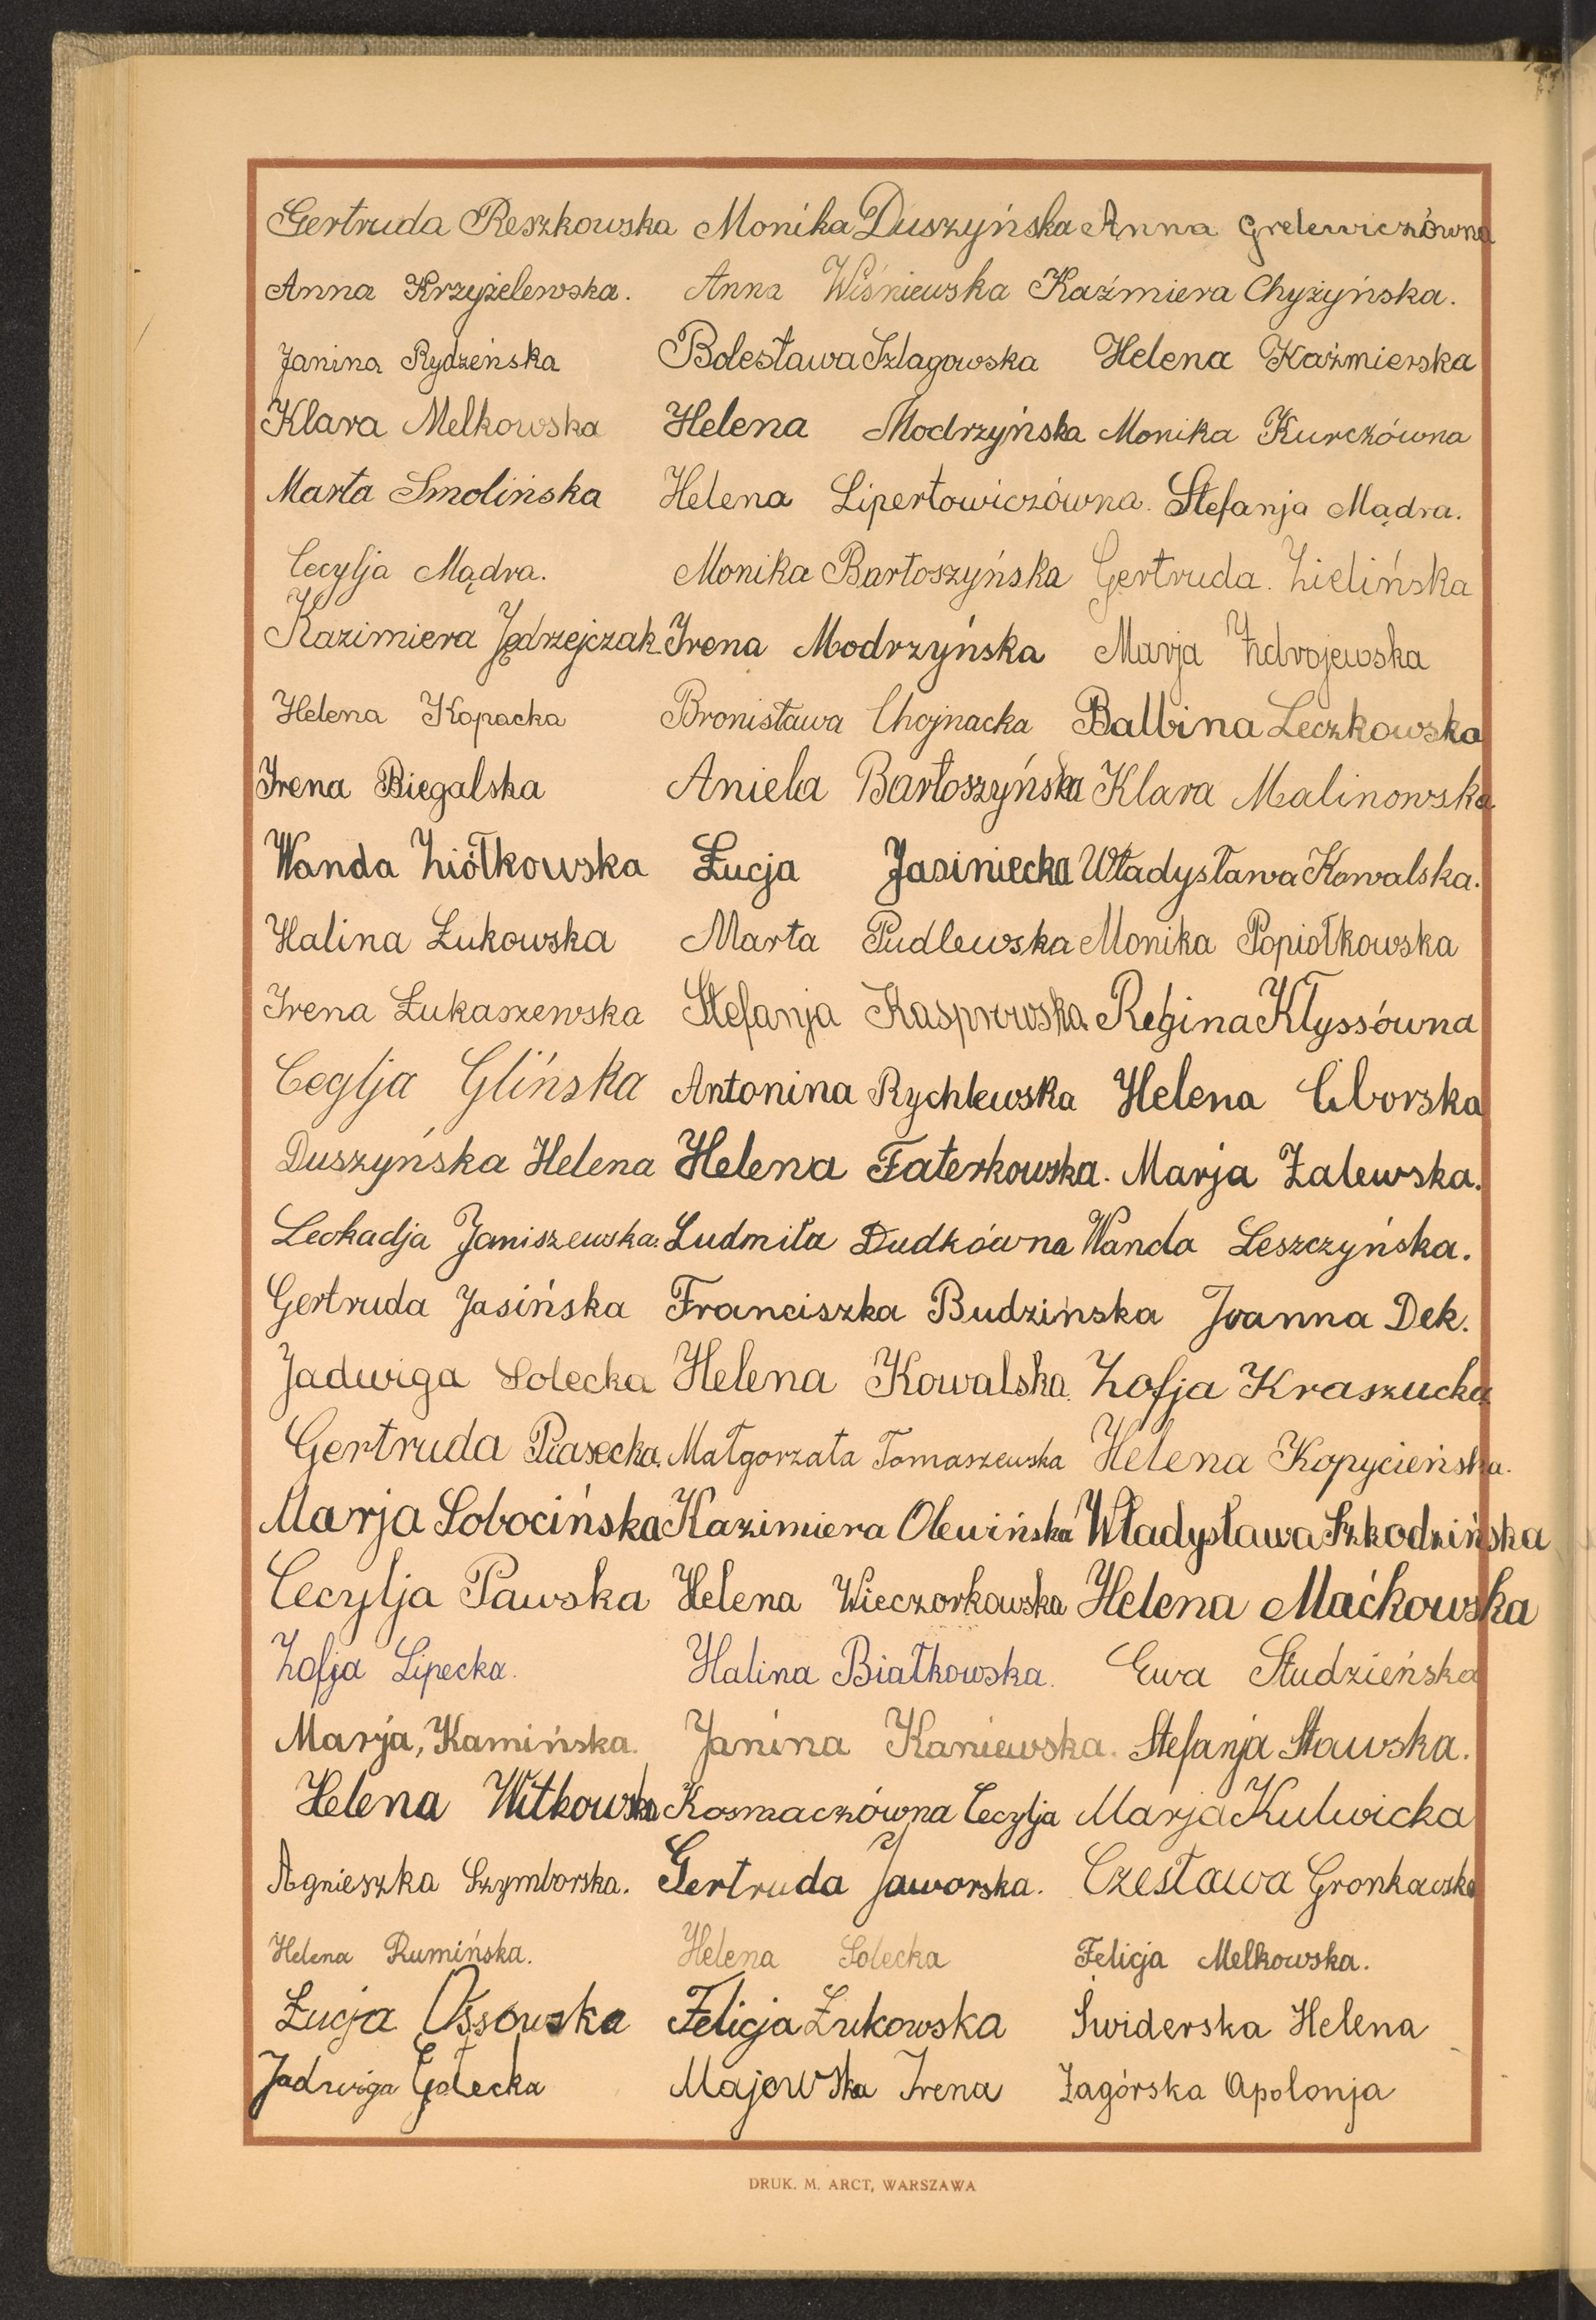 Gertruda Reszkowska Monika Duszyńska Anna Grelewiczówna
Anna Krzyżelewska. Anna Wiśniewska Kaźmiera Chyżyńska.
Janina Rydzeńska Bolesława Szlagowska Helena Kaźmierska
Klara Melkowska Helena Modrzyńska Monika Kurczówna
Marta Smolińska Helena Lipertowiczówna. Stefanja Mądra.
Cecylja Mądra. Monika Bartoszyńska Gertruda. Zielińska
Kazimiera Jędrzejczak Irena Modrzyńska Marja Zdrojewska
Helena Kopacka Bronisława Chojnacka Balbina Leczkowska
Irena Biegalska Aniela Bartoszyńska Klara Malinowska
Wanda Ziółkowska Łucja Jasiniecka Władysława Kowalska.
Halina Żukowska Marta Pudlewska Monika Popiołkowska
Irena Łukaszewska Stefanja Kasprowska Regina Kłyssówna
Ceglja Glińska Antonina Rychlewska Helena Ciborska
Duszyńska Helena Helena Faterkowska. Marja Zalewska.
Leokadja Janiszewska. Ludmiła Dudkówna Wanda Leszczyńska.
Gertruda Jasińska Franciszka Budzińska Joanna Dek.
Jadwiga Solecka Helena Kowalska. Zofja Kraszucka
Gertruda Piasecka. Małgorzata Tomaszewska Helena Kopycieńska.
Marja Sobocińska Kazimiera Olewińska Władysława Szkodzińska
Cecylja Pawska Helena Wieczorkowska Helena Maćkowska
Zofja Lipecka. Halina Białkowska. Ewa Studzieńska
Marja, Kamińska. Janina Kaniewska. Stefanja Stawska.
Helena Witkowska Kosmaczówna Cecylja Marja Kulwicka
Agnieszka Szymborska. Gertruda Jaworska. Czesława Gronkowska
Helena Rumińska. Helena Solecka Felicja Melkowska.
Łucja Ossowska Felicja Żukowska Świderska Helena
Jadwiga Gołecka Majowska Irena Zagórska Apolonja
DRUK. M. ARCT, WARSZAWA